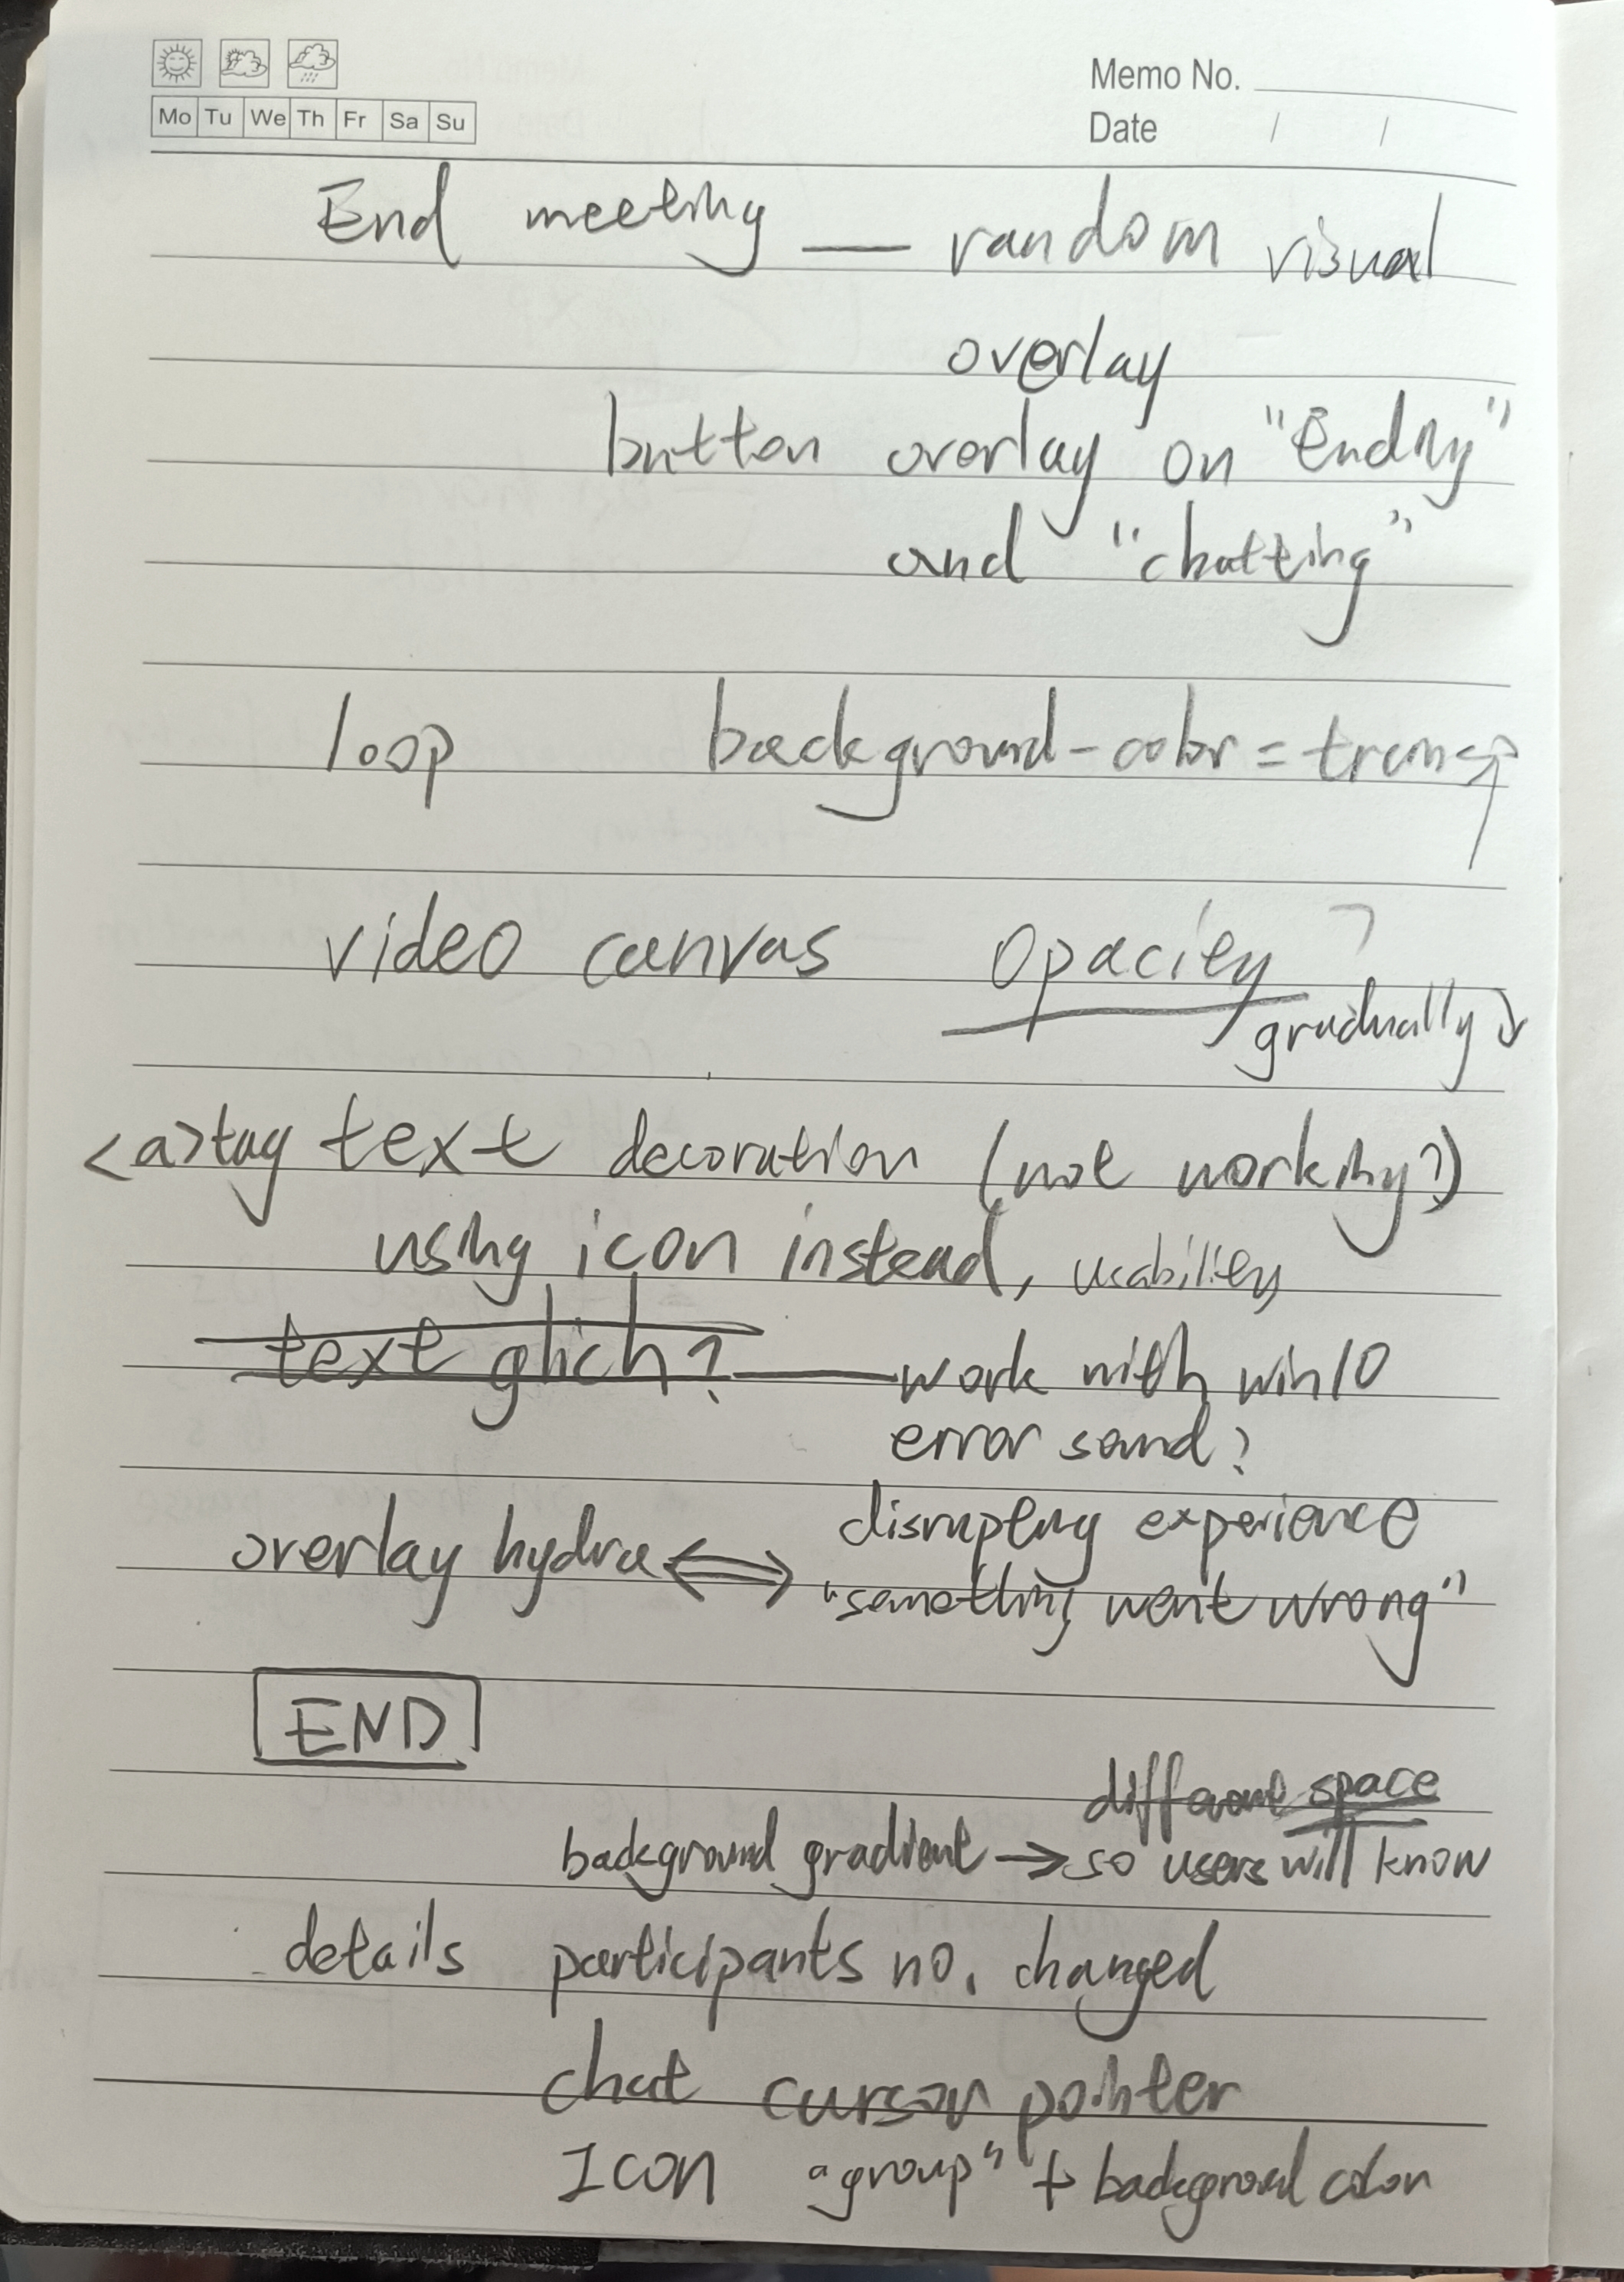 Memo No.
Mo Tu We Th Fr Sa Su
Date / /
End meeting — random visual
overlay
button overlay on "Ending"
and "chatting"
loop background-color = transp
video canvas opacity ?
gradually ↓
<a>tag text decoration (not working?)
using icon instead, usability
text glich? — work with win10
error sound?
overlay hydra ⟺ disrupting experience
"something went wrong"
END
different space
background gradient → so users will know
details participants no. changed
chat cursor pointer
Icon "group" + background color